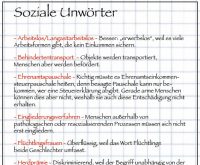 Soziale Unwörter
- Arbeitslos/Langzeitarbeitslos - Besser: „erwerbslos", weil es viele
Arbeitsformen gibt, die kein Einkommen sichern.
- Behindertentransport - Objekte werden transportiert,
Menschen aber werden befördert.
- Ehrenamtspauschale - Richtig müsste es Ehrenamtseinkommen-
steuerpauschale heißen, denn besagte Pauschale kann nur be-
kommen, wer eine Steuererklärung abgibt. Gerade arme Menschen
können dies aber nicht, weshalb sie auch diese Entschädigung nicht
erhalten.
- Eingliederungsverfahren - Menschen außerhalb von
pathologischen oder resozialisierenden Prozessen müssen sich nicht
erst eingliedern.
- Flüchtlingsfrauen - Überflüssig, weil das Wort Flüchtlinge
beide Geschlechter umfasst.
- Herdprämie - Diskriminierend, weil der Begriff unabhängig von der